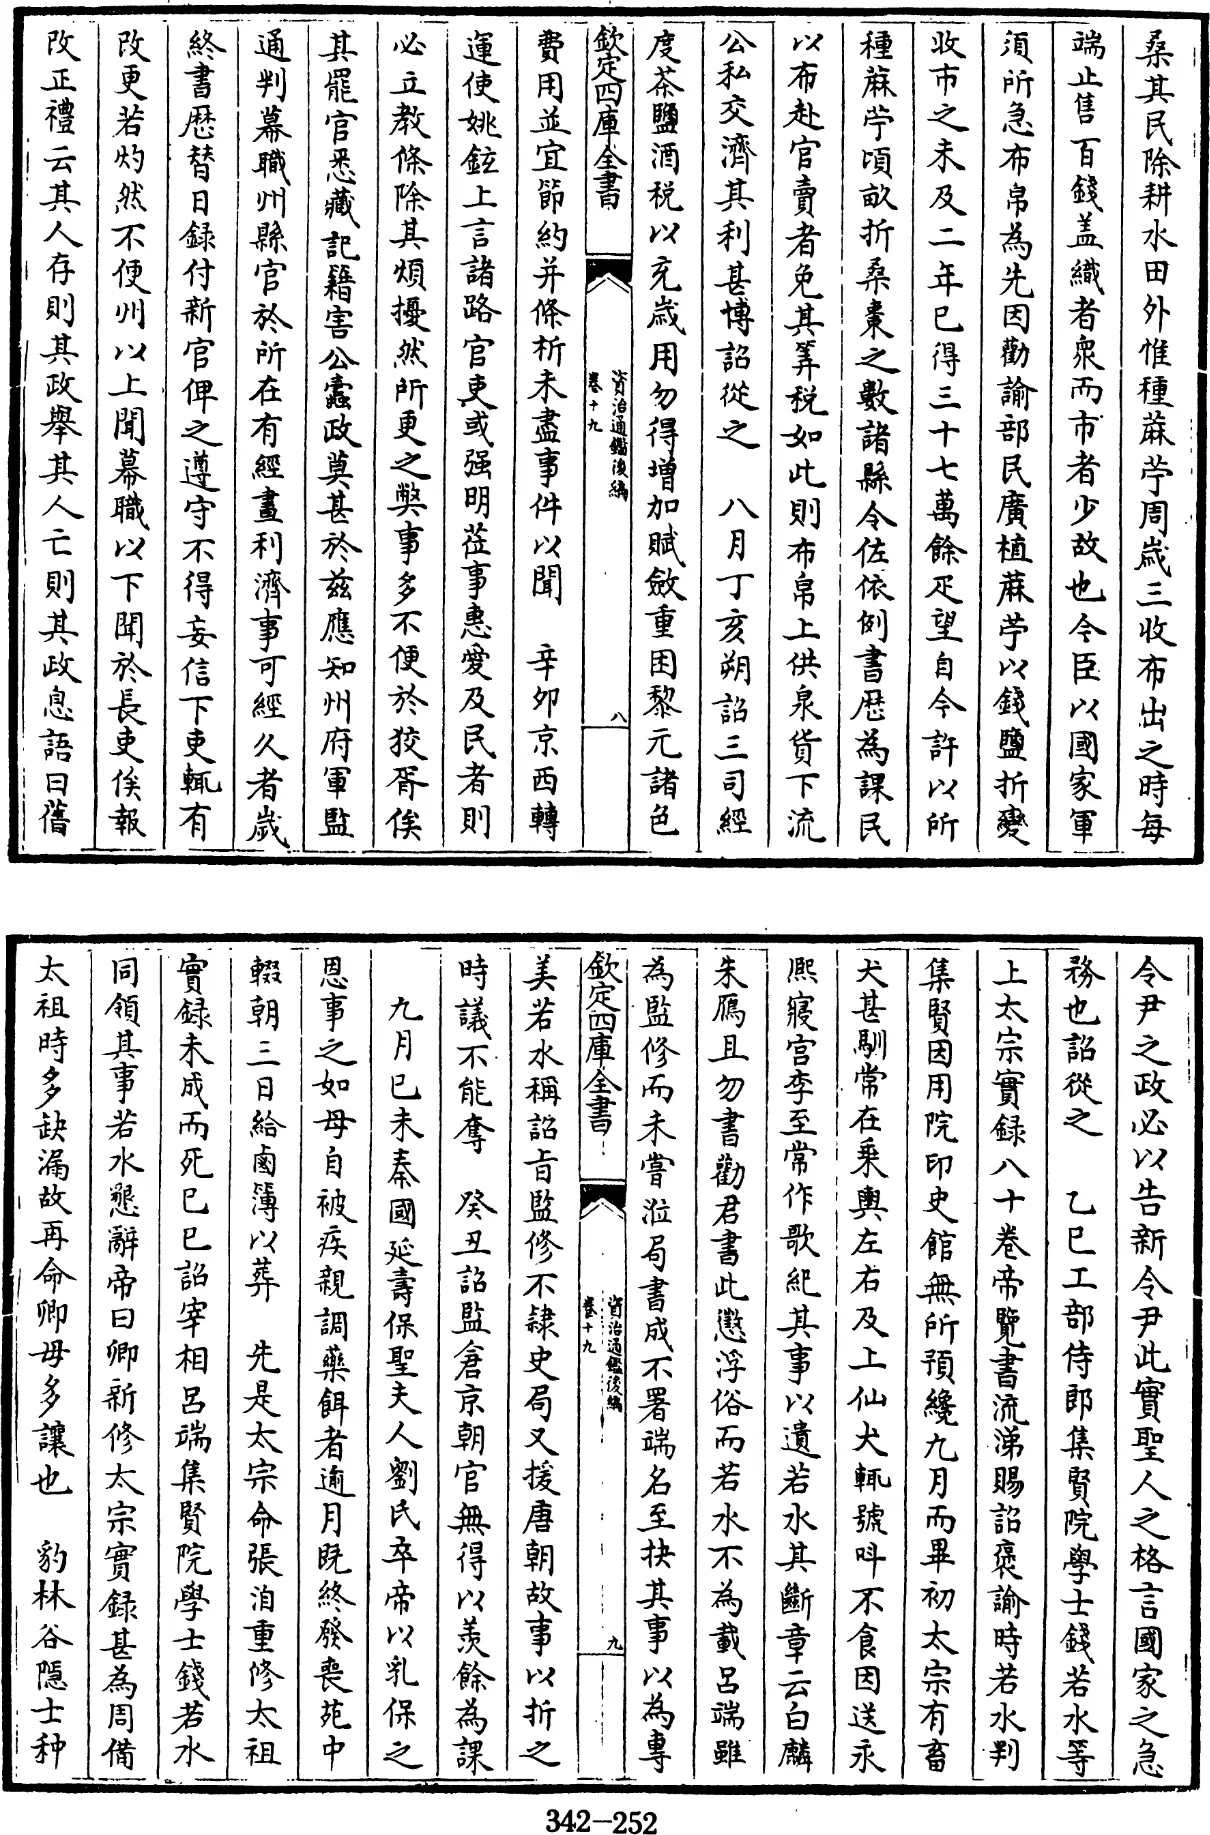 桑其民除耕水田外惟種蔴苧周歲三收布出之時每
端止售百錢盖織者衆而市者少故也今臣以國家軍
須所急布帛為先因勸諭部民廣植蔴苧以錢鹽折變
收市之未及二年已得三十七萬餘疋望自今許以所
種蔴苧頃畝折桑棗之數諸縣令佐依例書歴為課民
以布赴官賣者免其筭税如此則布帛上供泉貨下流
公私交濟其利甚博詔從之　八月丁亥朔詔三司經
度茶鹽酒税以充歲用勿得增加賦斂重困黎元諸色
欽定四庫全書
資治通鑑後編
卷十九
八
費用並宜節約并條析未盡事件以聞　辛夘京西轉
運使姚鉉上言諸路官吏或强明莅事惠愛及民者則
必立教條除其煩擾然所更之弊事多不便於狡胥俟
其罷官悉藏記籍害公蠹政莫甚於兹應知州府軍監
通判幕職州縣官於所在有經畫利濟事可經久者歲
終書歴替日録付新官俾之遵守不得妄信下吏輒有
改更若灼然不便州以上聞幕職以下聞於長吏俟報
改正禮云其人存則其政舉其人亡則其政息語曰舊
令尹之政必以告新令尹此實聖人之格言國家之急
務也詔從之　乙巳工部侍郎集賢院學士錢若水等
上太宗實録八十巻帝覽書流涕賜詔褒諭時若水判
集賢因用院印史館無所預纔九月而畢初太宗有畜
犬甚馴常在乗輿左右及上仙犬輒號呌不食因送永
熈寢宫李至常作歌紀其事以遺若水其斷章云白麟
朱鴈且勿書勸君書此懲浮俗而若水不為載呂端雖
為監修而未嘗涖局書成不署端名至抉其事以為專
欽定四庫全書
資治通鑑後編
卷十九
九
美若水稱詔㫖監修不隷史局又援唐朝故事以折之
時議不能奪　癸丑詔監倉京朝官無得以羡餘為課
九月己未秦國延壽保聖夫人劉氏卒帝以乳保之
恩事之如母自被疾親調藥餌者逾月既終發喪苑中
輟朝三日給鹵簿以葬　先是太宗命張洎重修太祖
實録未成而死己巳詔宰相呂端集賢院學士錢若水
同領其事若水懇辭帝曰卿新修太宗實録甚為周備
太祖時多缺漏故再命卿毋多讓也　豹林谷隱士种
342-252